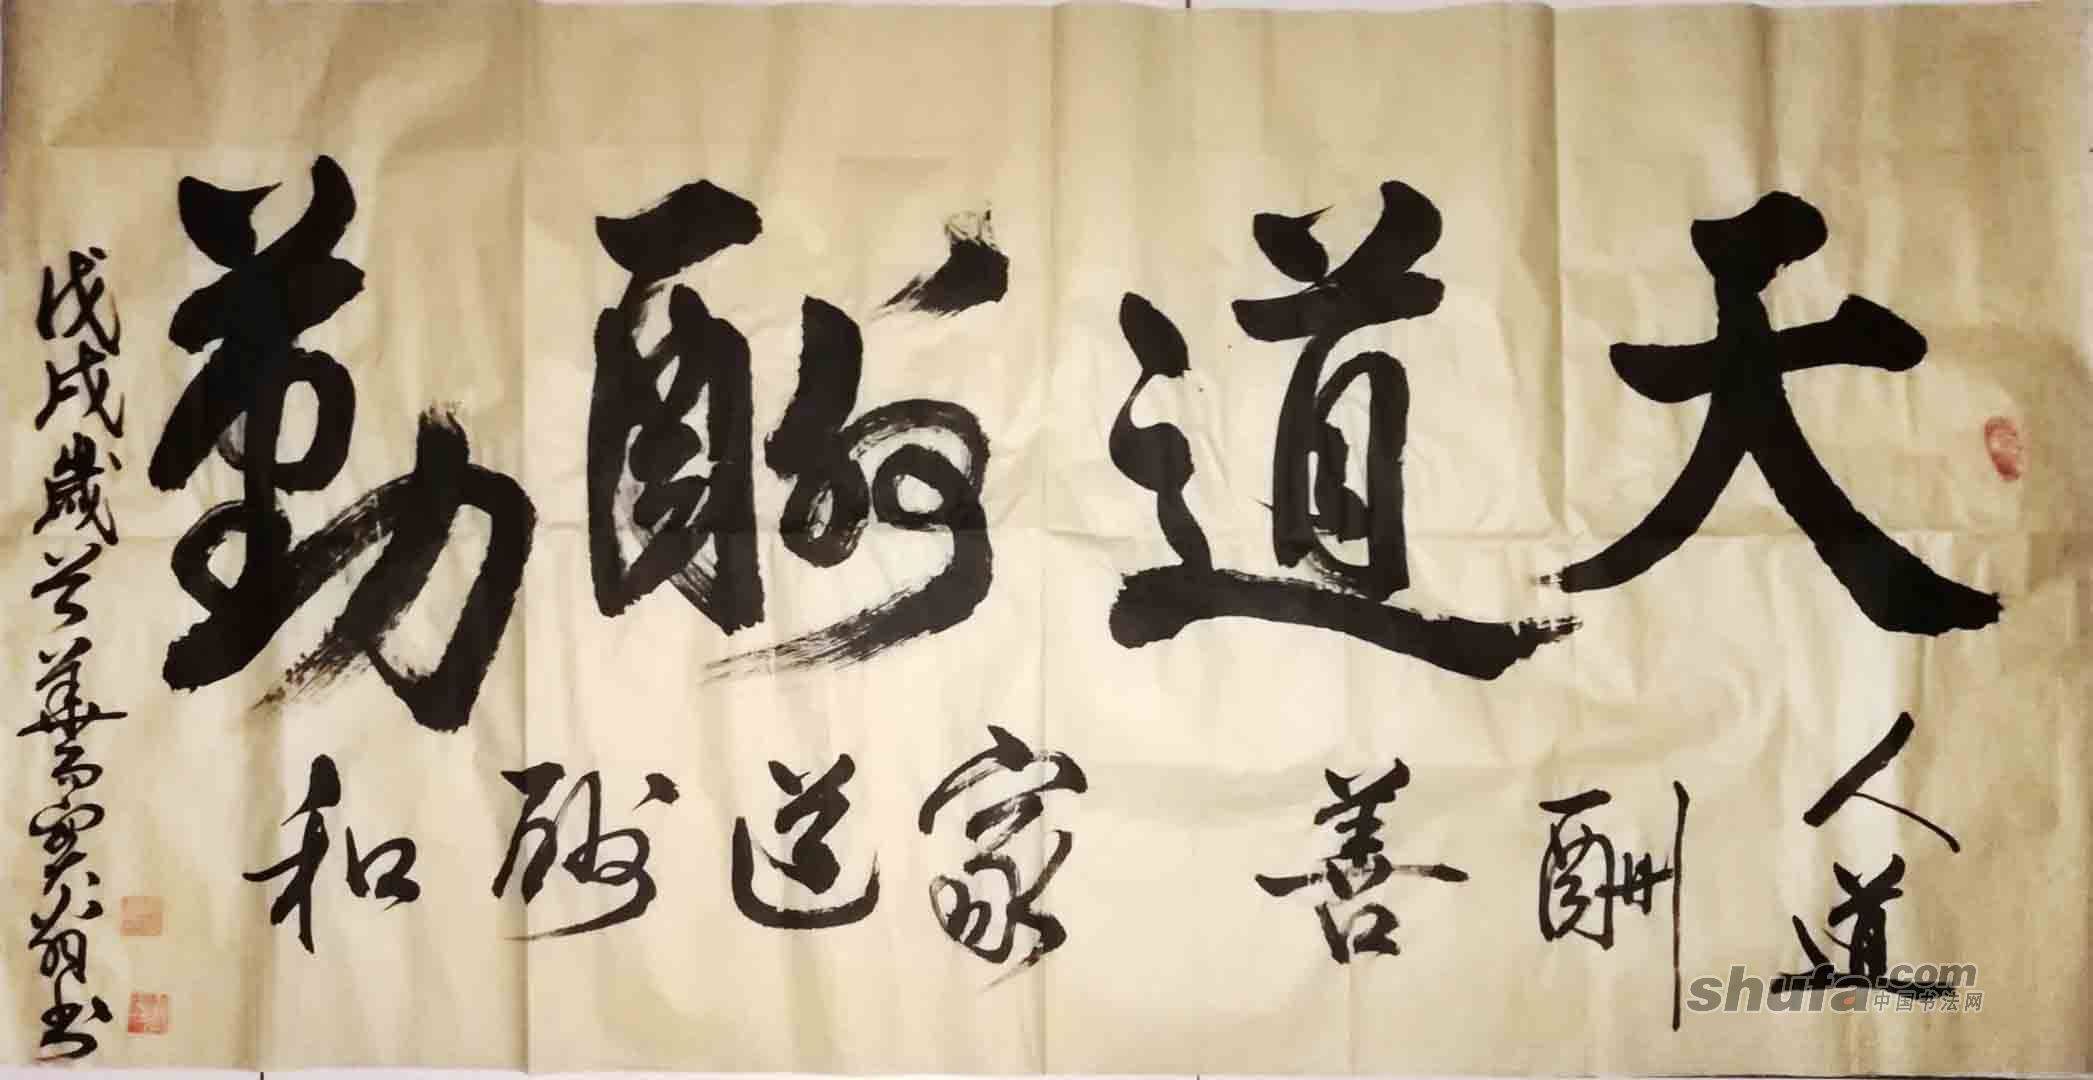 天道酬勤
人道酬善
家道酬和
戊戌歲
書
shufa.com
中国书法网